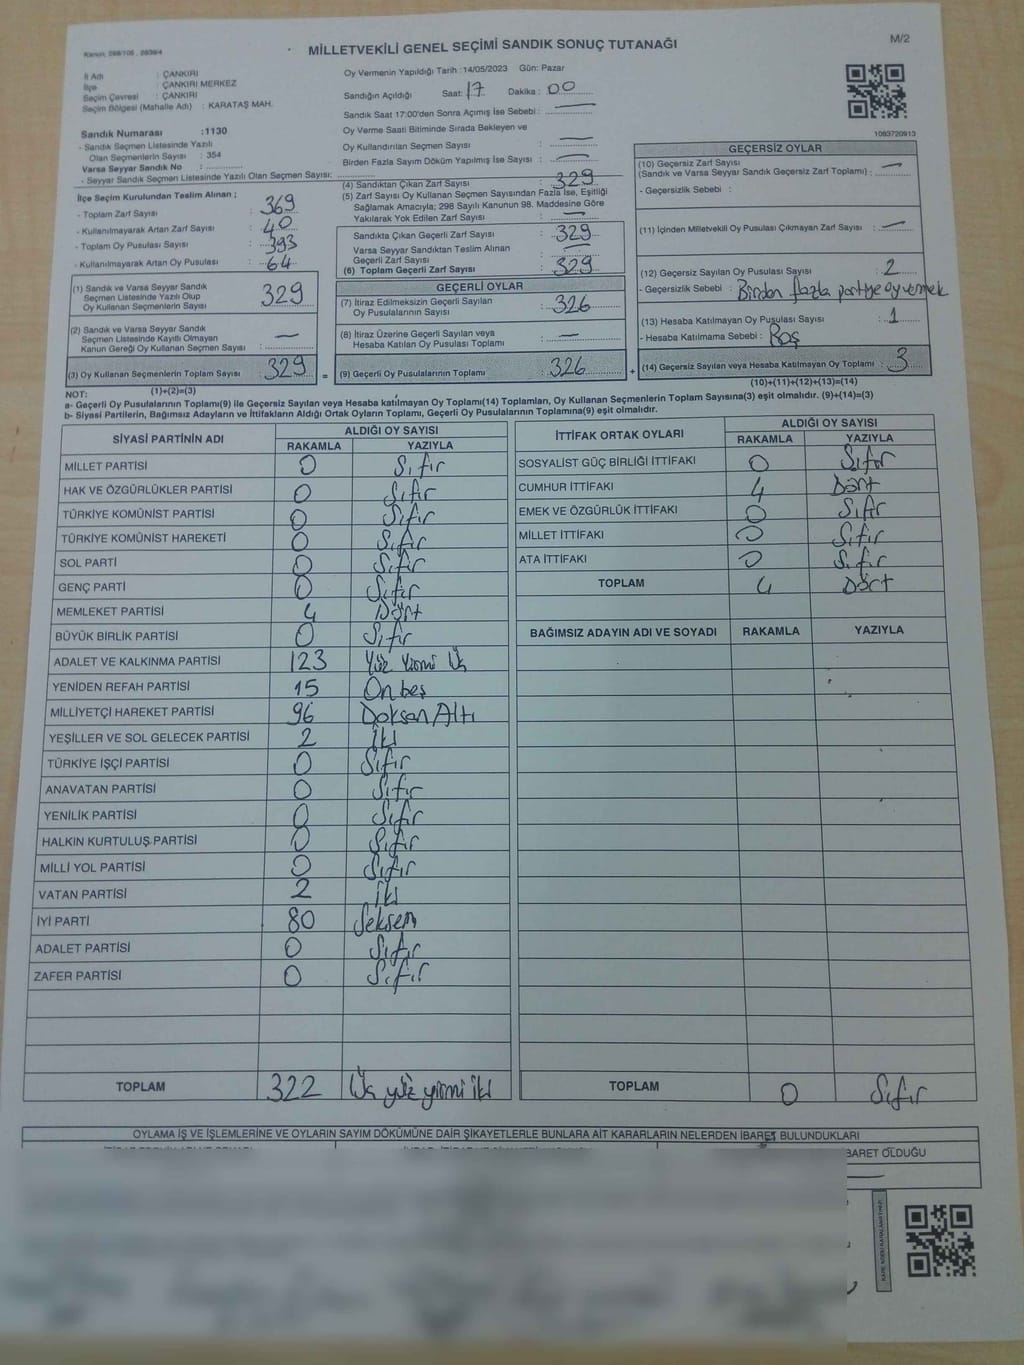 Kanun, 298/105 , 2839/4
MİLLETVEKİLİ GENEL SEÇİMİ SANDIK SONUÇ TUTANAĞI
M/2
İl Adı : ÇANKIRI
İlçe : ÇANKIRI MERKEZ
Seçim Çevresi : ÇANKIRI
Seçim Bölgesi (Mahalle Adı) : KARATAŞ MAH.
Sandık Numarası :1130
- Sandık Seçmen Listesinde Yazılı
Olan Seçmenlerin Sayısı : 354
Varsa Seyyar Sandık No :
- Seyyar Sandık Seçmen Listesinde Yazılı Olan Seçmen Sayısı:
Oy Vermenin Yapıldığı Tarih :14/05/2023 Gün: Pazar
Sandığın Açıldığı Saat: 17 Dakika : 00
Sandık Saat 17:00'den Sonra Açımış İse Sebebi : —
Oy Verme Saati Bitiminde Sırada Bekleyen ve
Oy Kullandırılan Seçmen Sayısı : —
Birden Fazla Sayım Döküm Yapılmış İse Sayısı : —
1093720913
İlçe Seçim Kurulundan Teslim Alınan ;
- Toplam Zarf Sayısı : 369
- Kullanılmayarak Artan Zarf Sayısı : 40
- Toplam Oy Pusulası Sayısı : 393
- Kullanılmayarak Artan Oy Pusulası : 64
(1) Sandık ve Varsa Seyyar Sandık
Seçmen Listesinde Yazılı Olup
Oy Kullanan Seçmenlerin Sayısı 329
(2) Sandık ve Varsa Seyyar Sandık
Seçmen Listesinde Kayıtlı Olmayan
Kanun Gereği Oy Kullanan Seçmen Sayısı : —
(3) Oy Kullanan Seçmenlerin Toplam Sayısı 329
(1)+(2)=(3)
(4) Sandıktan Çıkan Zarf Sayısı : 329
(5) Zarf Sayısı Oy Kullanan Seçmen Sayısından Fazla İse, Eşitliği
Sağlamak Amacıyla; 298 Sayılı Kanunun 98. Maddesine Göre
Yakılarak Yok Edilen Zarf Sayısı : —
Sandıkta Çıkan Geçerli Zarf Sayısı : 329
Varsa Seyyar Sandıktan Teslim Alınan
Geçerli Zarf Sayısı : —
(6) Toplam Geçerli Zarf Sayısı : 329
GEÇERLİ OYLAR
(7) İtiraz Edilmeksizin Geçerli Sayılan
Oy Pusulalarının Sayısı : 326
(8) İtiraz Üzerine Geçerli Sayılan veya
Hesaba Katılan Oy Pusulası Toplamı : —
= (9) Geçerli Oy Pusulalarının Toplamı : 326
GEÇERSİZ OYLAR
(10) Geçersiz Zarf Sayısı
(Sandık ve Varsa Seyyar Sandık Geçersiz Zarf Toplamı) : —
- Geçersizlik Sebebi :
(11) İçinden Milletvekili Oy Pusulası Çıkmayan Zarf Sayısı : —
(12) Geçersiz Sayılan Oy Pusulası Sayısı : 2
- Geçersizlik Sebebi : Birden fazla partiye oy vermek
(13) Hesaba Katılmayan Oy Pusulası Sayısı : 1
- Hesaba Katılmama Sebebi : Boş
+ (14) Geçersiz Sayılan veya Hesaba Katılmayan Oy Toplamı : 3
(10)+(11)+(12)+(13)=(14)
NOT:
a- Geçerli Oy Pusulalarının Toplamı(9) ile Geçersiz Sayılan veya Hesaba katılmayan Oy Toplamı(14) Toplamları, Oy Kullanan Seçmenlerin Toplam Sayısına(3) eşit olmalıdır. (9)+(14)=(3)
b- Siyasi Partilerin, Bağımsız Adayların ve İttifakların Aldığı Ortak Oyların Toplamı, Geçerli Oy Pusulalarının Toplamına(9) eşit olmalıdır.
SİYASİ PARTİNİN ADI ALDIĞI OY SAYISI
RAKAMLA YAZIYLA
MİLLET PARTİSİ 0 Sıfır
HAK VE ÖZGÜRLÜKLER PARTİSİ 0 Sıfır
TÜRKİYE KOMÜNİST PARTİSİ 0 Sıfır
TÜRKİYE KOMÜNİST HAREKETİ 0 Sıfır
SOL PARTİ 0 Sıfır
GENÇ PARTİ 0 Sıfır
MEMLEKET PARTİSİ 4 Dört
BÜYÜK BİRLİK PARTİSİ 0 Sıfır
ADALET VE KALKINMA PARTİSİ 123 Yüz Yirmi Üç
YENİDEN REFAH PARTİSİ 15 On beş
MİLLİYETÇİ HAREKET PARTİSİ 96 Doksan Altı
YEŞİLLER VE SOL GELECEK PARTİSİ 2 İki
TÜRKİYE İŞÇİ PARTİSİ 0 Sıfır
ANAVATAN PARTİSİ 0 Sıfır
YENİLİK PARTİSİ 0 Sıfır
HALKIN KURTULUŞ PARTİSİ 0 Sıfır
MİLLİ YOL PARTİSİ 0 Sıfır
VATAN PARTİSİ 2 İki
İYİ PARTİ 80 Seksen
ADALET PARTİSİ 0 Sıfır
ZAFER PARTİSİ 0 Sıfır
TOPLAM 322 Üç yüz yirmi iki
İTTİFAK ORTAK OYLARI ALDIĞI OY SAYISI
RAKAMLA YAZIYLA
SOSYALİST GÜÇ BİRLİĞİ İTTİFAKI 0 Sıfır
CUMHUR İTTİFAKI 4 Dört
EMEK VE ÖZGÜRLÜK İTTİFAKI 0 Sıfır
MİLLET İTTİFAKI 0 Sıfır
ATA İTTİFAKI 0 Sıfır
TOPLAM 4 Dört
BAĞIMSIZ ADAYIN ADI VE SOYADI RAKAMLA YAZIYLA
TOPLAM 0 Sıfır
OYLAMA İŞ VE İŞLEMLERİNE VE OYLARIN SAYIM DÖKÜMÜNE DAİR ŞİKAYETLERLE BUNLARA AİT KARARLARIN NELERDEN İBARET BULUNDUKLARI
BARET OLDUĞU